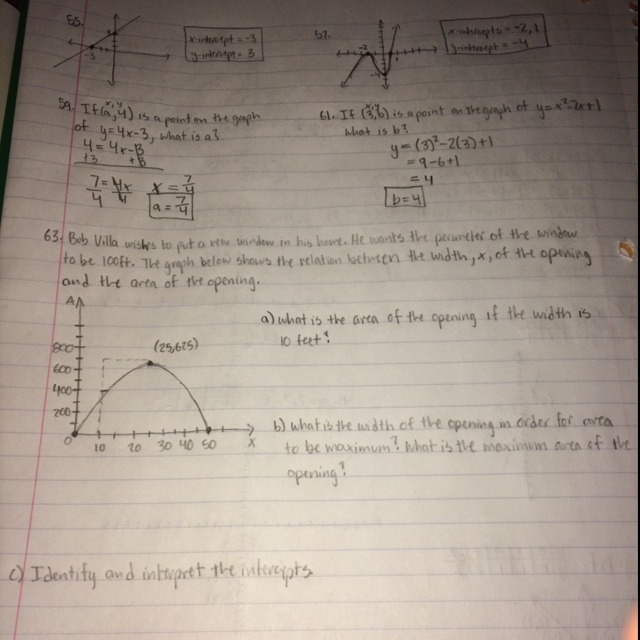 55.
x-intercept = -3
y-intercept = 3
-3
57.
x-intercepts = -2, 1
y-intercept = -4
-2
59. If (a, 4) is a point on the graph
x, y
of y = 4x - 3, what is a?
4 = 4x - 3
+3 +3
7 = 4x
4 4
x = 7/4
a = 7/4
61. If (3, b) is a point on the graph of y = x² - 2x + 1
x, y
what is b?
y = (3)² - 2(3) + 1
= 9 - 6 + 1
= 4
b = 4
63. Bob Villa wishes to put a new window in his home. He wants the perimeter of the window
to be 100ft. The graph below shows the relation between the width, x, of the opening
and the area of the opening.
A
800
600
400
200
0
10 20 30 40 50 x
(25,625)
a) what is the area of the opening if the width is
10 feet?
b) what is the width of the opening in order for area
to be maximum? What is the maximum area of the
opening?
c) Identify and interpret the intercepts